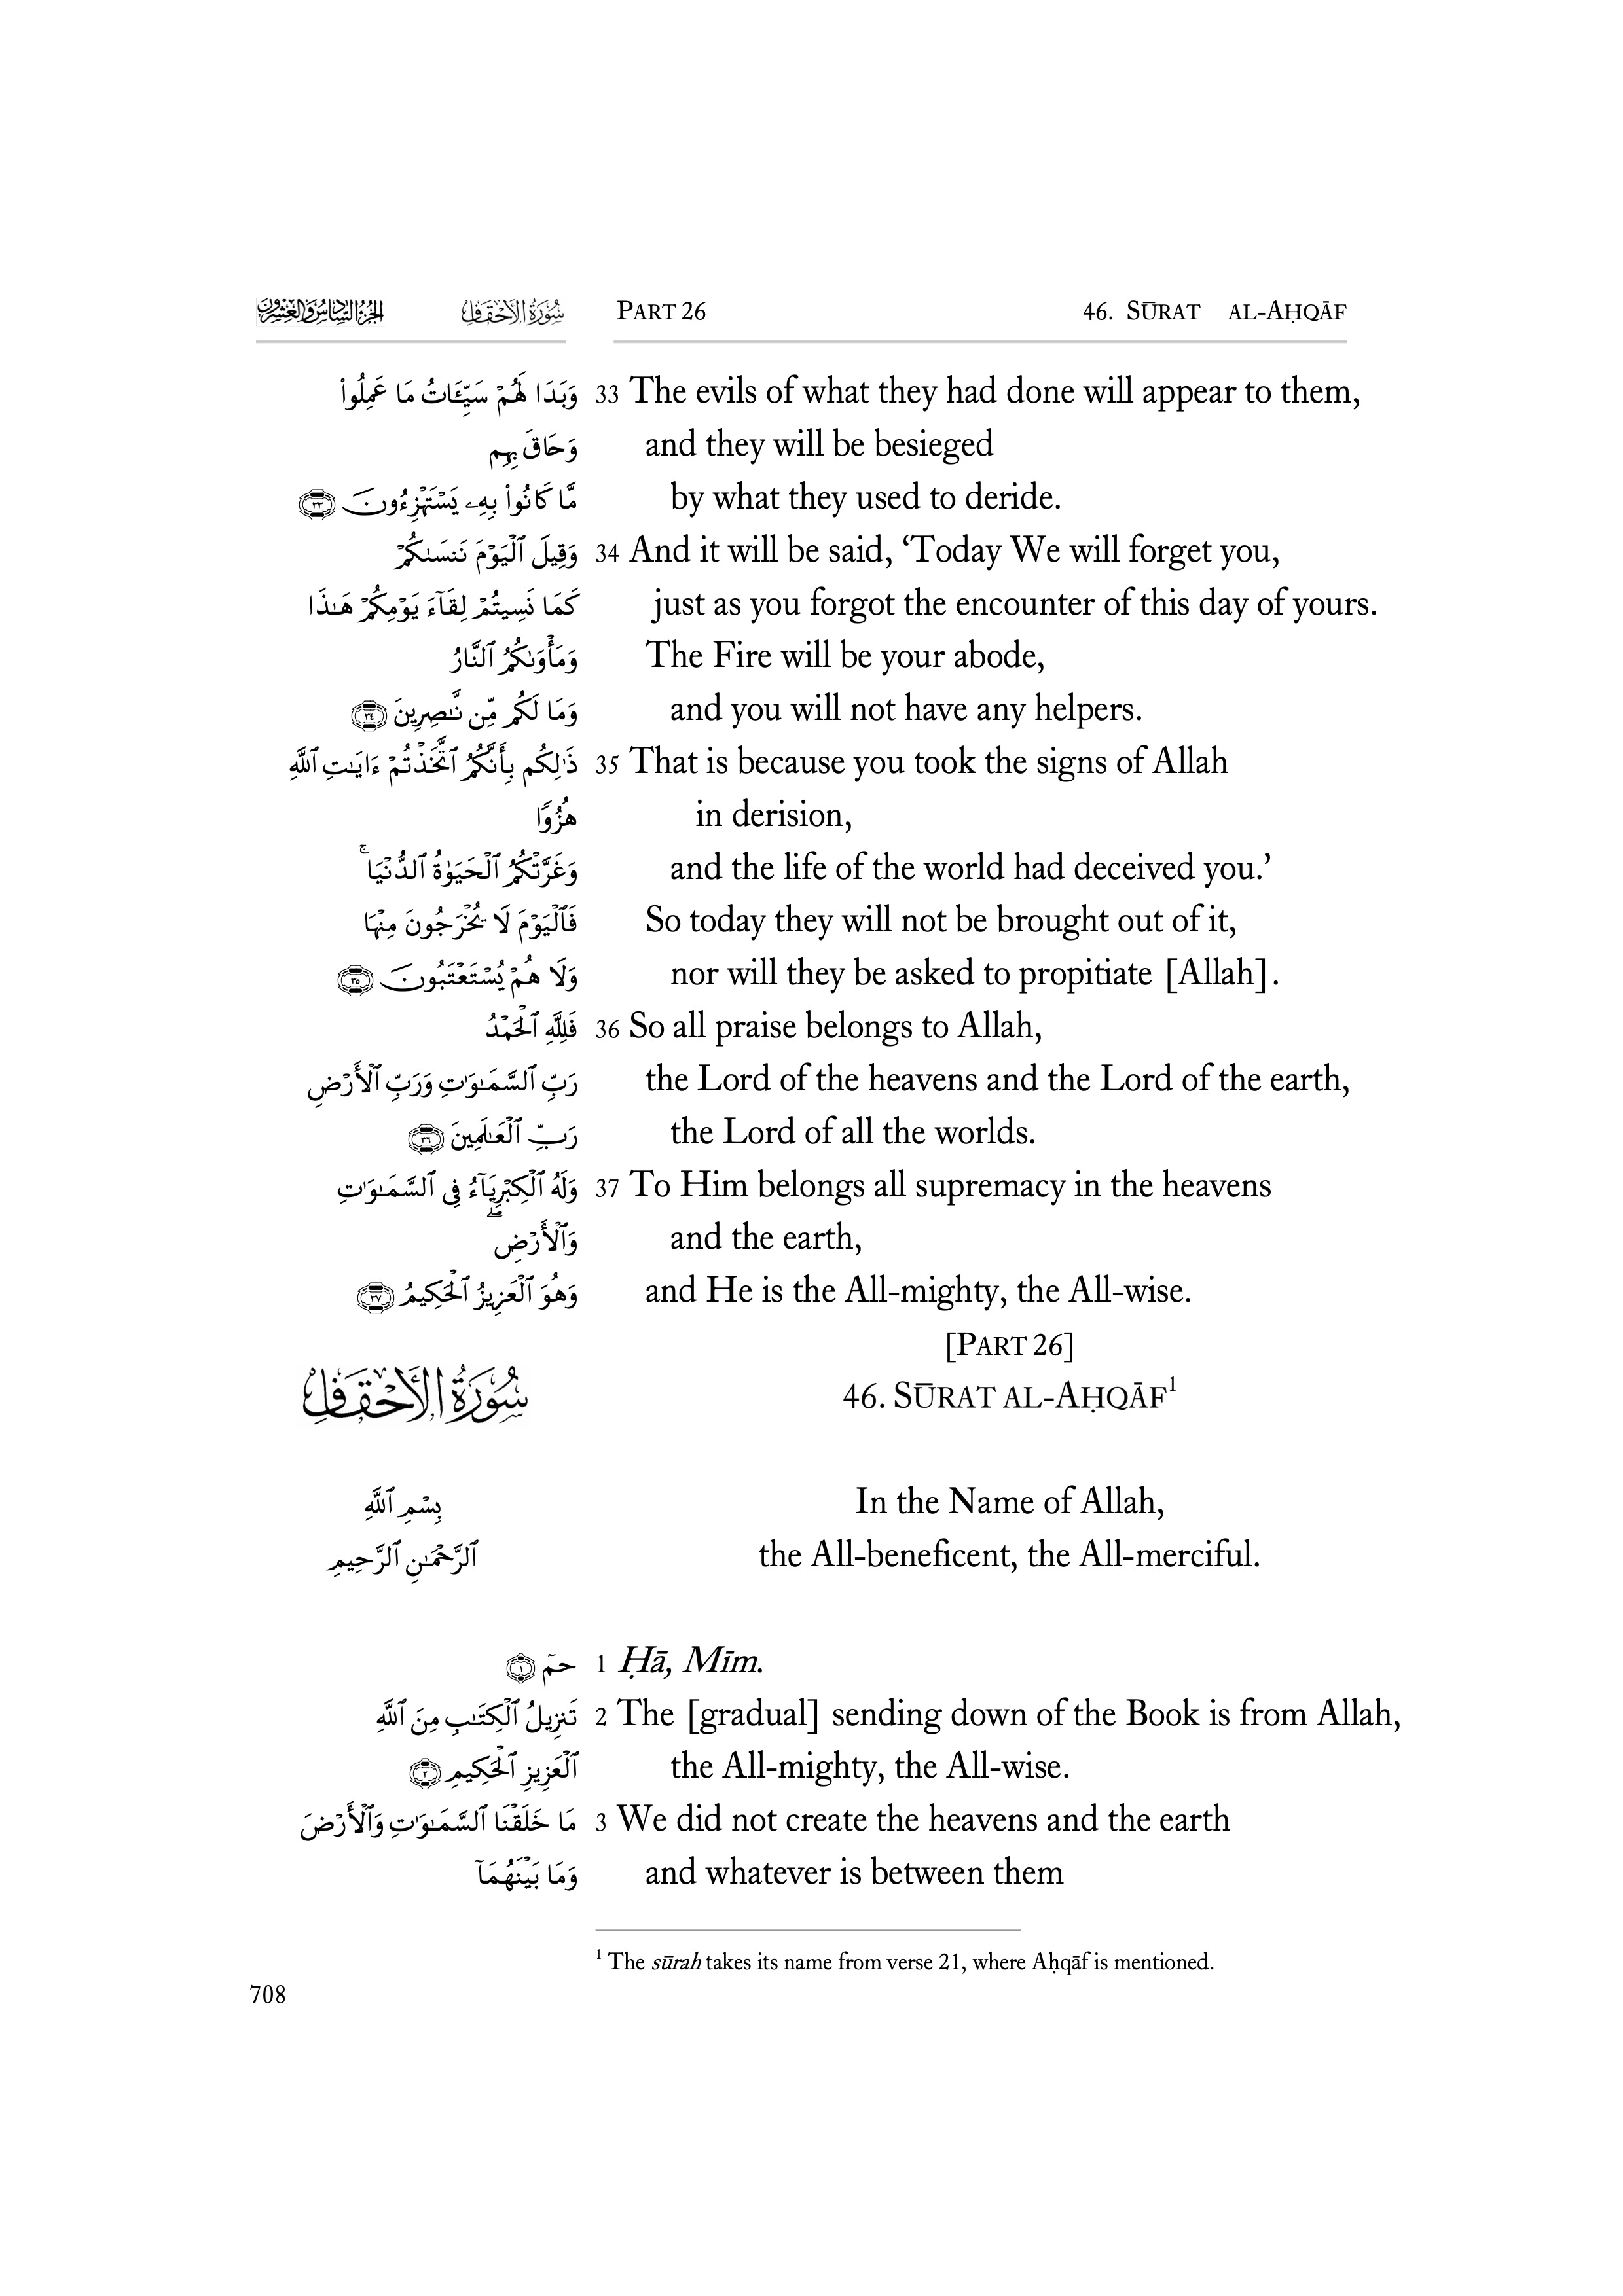 الجزء السادس والعشرون سورة الأحقاف PART 26 46. SŪRAT AL-AḤQĀF
وَبَدَا لَهُمْ سَيِّـَٔاتُ مَا عَمِلُوا۟ 33 The evils of what they had done will appear to them,
وَحَاقَ بِهِم and they will be besieged
مَّا كَانُوا۟ بِهِۦ يَسْتَهْزِءُونَ ﴿٣٣﴾ by what they used to deride.
وَقِيلَ ٱلْيَوْمَ نَنسَىٰكُمْ 34 And it will be said, ‘Today We will forget you,
كَمَا نَسِيتُمْ لِقَآءَ يَوْمِكُمْ هَـٰذَا just as you forgot the encounter of this day of yours.
وَمَأْوَىٰكُمُ ٱلنَّارُ The Fire will be your abode,
وَمَا لَكُم مِّن نَّـٰصِرِينَ ﴿٣٤﴾ and you will not have any helpers.
ذَٰلِكُم بِأَنَّكُمُ ٱتَّخَذْتُمْ ءَايَـٰتِ ٱللَّهِ 35 That is because you took the signs of Allah
هُزُوًا in derision,
وَغَرَّتْكُمُ ٱلْحَيَوٰةُ ٱلدُّنْيَا ۚ and the life of the world had deceived you.’
فَٱلْيَوْمَ لَا يُخْرَجُونَ مِنْهَا So today they will not be brought out of it,
وَلَا هُمْ يُسْتَعْتَبُونَ ﴿٣٥﴾ nor will they be asked to propitiate [Allah].
فَلِلَّهِ ٱلْحَمْدُ 36 So all praise belongs to Allah,
رَبِّ ٱلسَّمَـٰوَٰتِ وَرَبِّ ٱلْأَرْضِ the Lord of the heavens and the Lord of the earth,
رَبِّ ٱلْعَـٰلَمِينَ ﴿٣٦﴾ the Lord of all the worlds.
وَلَهُ ٱلْكِبْرِيَآءُ فِى ٱلسَّمَـٰوَٰتِ 37 To Him belongs all supremacy in the heavens
وَٱلْأَرْضِ ۖ and the earth,
وَهُوَ ٱلْعَزِيزُ ٱلْحَكِيمُ ﴿٣٧﴾ and He is the All-mighty, the All-wise.
[PART 26]
سُورَةُ الأَحْقَافِ 46. SŪRAT AL-AḤQĀF¹
بِسْمِ ٱللَّهِ In the Name of Allah,
ٱلرَّحْمَـٰنِ ٱلرَّحِيمِ the All-beneficent, the All-merciful.
حمٓ ﴿١﴾ 1 Ḥā, Mīm.
تَنزِيلُ ٱلْكِتَـٰبِ مِنَ ٱللَّهِ 2 The [gradual] sending down of the Book is from Allah,
ٱلْعَزِيزِ ٱلْحَكِيمِ ﴿٢﴾ the All-mighty, the All-wise.
مَا خَلَقْنَا ٱلسَّمَـٰوَٰتِ وَٱلْأَرْضَ 3 We did not create the heavens and the earth
وَمَا بَيْنَهُمَآ and whatever is between them
¹ The sūrah takes its name from verse 21, where Aḥqāf is mentioned.
708